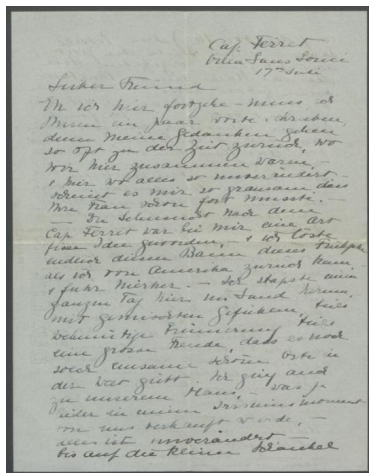 Cap Ferret
Villa Sans Souci
17ten Juli
Lieber Freund
Eh ich hier fortgehe muss ich
Ihnen ein paar Worte schreiben,
denn meine Gedanken gehen
so oft zu der Zeit zurück, wo
wir hier zusammen waren, –
& hier wo alles so unverändert
scheint es mir so grausam dass
Ihre Frau schon fort musste. –
– Die Sehnsucht nach dem
Cap Ferret war bei mir eine Art
fixe Idee geworden, – & ich löste
endlich diesen Bann dieses Frühjahr
als ich von Amerika zurück kam
& fuhr hierher. – Ich stapste einen
ganzen Tag hier im Sand herum
mit gemischten Gefühlen, teils
wehmütige Erinnerung teils
eine grosse Freude, dass es noch
solch einsame schöne Orte in
der Welt gibt. Ich ging auch
zu unserem Haus, – was ja
leider in einem
von uns verkauft wurde, –
alles ist unverändert
bis auf die kleinen